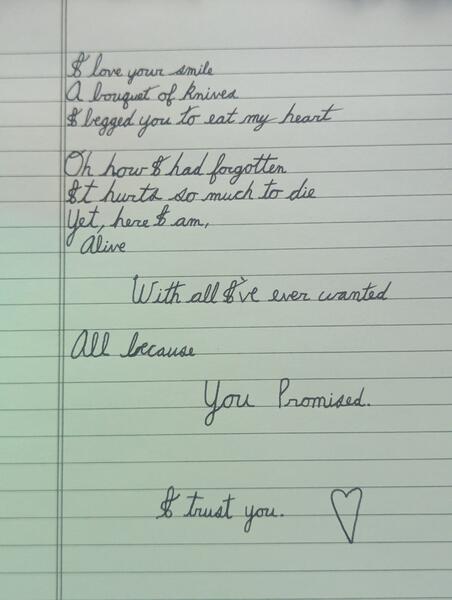 I love your smile
A bouquet of knives
I begged you to eat my heart
Oh how I had forgotten
It hurts so much to die
Yet, here I am,
Alive
With all I've ever wanted
All because
You Promised.
I trust you.